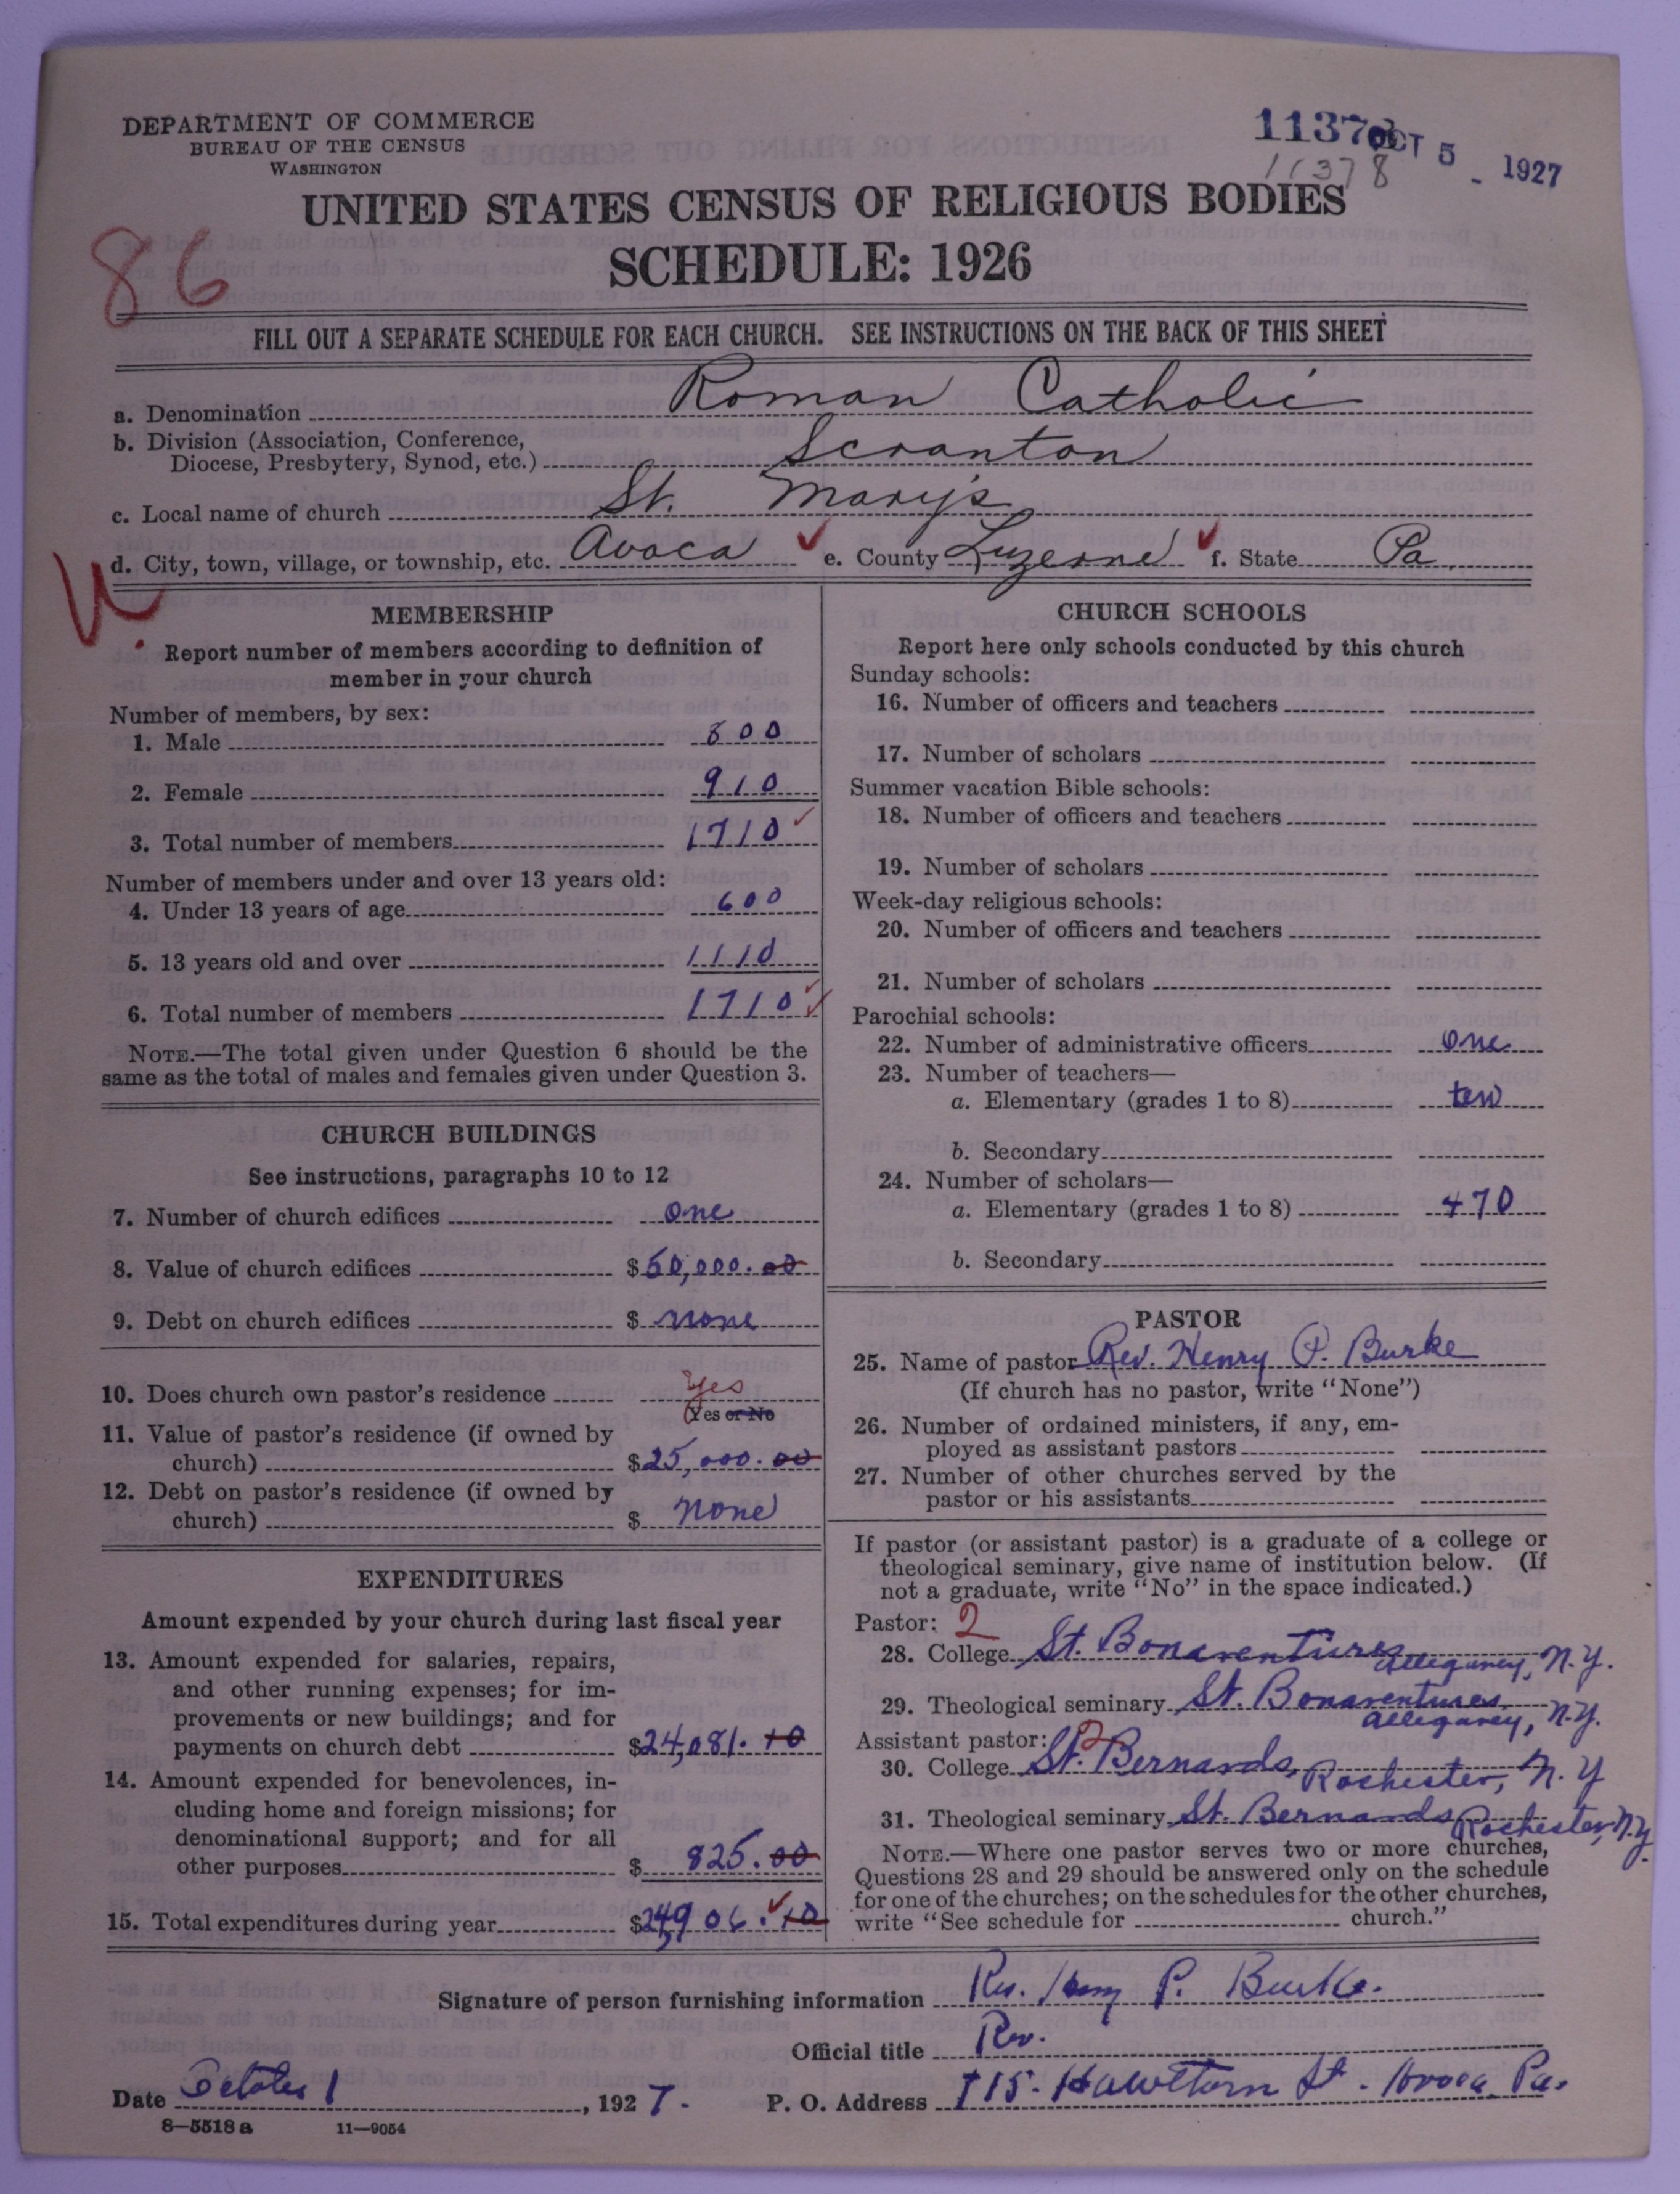 DEPARTMENT OF COMMERCE
BUREAU OF THE CENSUS
WASHINGTON
11378 OCT 5 - 1927
11378
UNITED STATES CENSUS OF RELIGIOUS BODIES
SCHEDULE: 1926
86
FILL OUT A SEPARATE SCHEDULE FOR EACH CHURCH. SEE INSTRUCTIONS ON THE BACK OF THIS SHEET
a. Denomination Roman Catholic
b. Division (Association, Conference,
Diocese, Presbytery, Synod, etc.) Scranton
c. Local name of church St. Mary's
d. City, town, village, or township, etc. Avoca e. County Luzerne f. State Pa.
MEMBERSHIP
Report number of members according to definition of
member in your church
Number of members, by sex:
1. Male 800
2. Female 910
3. Total number of members 1710
Number of members under and over 13 years old:
4. Under 13 years of age 600
5. 13 years old and over 1110
6. Total number of members 1710
NOTE.—The total given under Question 6 should be the
same as the total of males and females given under Question 3.
CHURCH BUILDINGS
See instructions, paragraphs 10 to 12
7. Number of church edifices one
8. Value of church edifices $50,000.00
9. Debt on church edifices $ none
10. Does church own pastor's residence yes
Yes or No
11. Value of pastor's residence (if owned by
church) $25,000.00
12. Debt on pastor's residence (if owned by
church) $ none
EXPENDITURES
Amount expended by your church during last fiscal year
13. Amount expended for salaries, repairs,
and other running expenses; for im-
provements or new buildings; and for
payments on church debt $24,081.10
14. Amount expended for benevolences, in-
cluding home and foreign missions; for
denominational support; and for all
other purposes $ 825.00
15. Total expenditures during year $24,906.10
CHURCH SCHOOLS
Report here only schools conducted by this church
Sunday schools:
16. Number of officers and teachers
17. Number of scholars
Summer vacation Bible schools:
18. Number of officers and teachers
19. Number of scholars
Week-day religious schools:
20. Number of officers and teachers
21. Number of scholars
Parochial schools:
22. Number of administrative officers One
23. Number of teachers—
a. Elementary (grades 1 to 8) ten
b. Secondary
24. Number of scholars—
a. Elementary (grades 1 to 8) 470
b. Secondary
PASTOR
25. Name of pastor Rev. Henry P. Burke
(If church has no pastor, write "None")
26. Number of ordained ministers, if any, em-
ployed as assistant pastors
27. Number of other churches served by the
pastor or his assistants
If pastor (or assistant pastor) is a graduate of a college or
theological seminary, give name of institution below. (If
not a graduate, write "No" in the space indicated.)
Pastor: 2
28. College St. Bonaventures Allegany, N.Y.
29. Theological seminary St. Bonaventures Allegany, N.Y.
Assistant pastor: 2
30. College St. Bernards, Rochester, N.Y
31. Theological seminary St. Bernards Rochester, N.Y.
NOTE.—Where one pastor serves two or more churches,
Questions 28 and 29 should be answered only on the schedule
for one of the churches; on the schedules for the other churches,
write "See schedule for church."
Signature of person furnishing information Rev. Henry P. Burke.
Official title Rev.
Date October 1, 1927. P. O. Address 715. Hawthorn St. Avoca Pa.
8—5518 a 11—9054